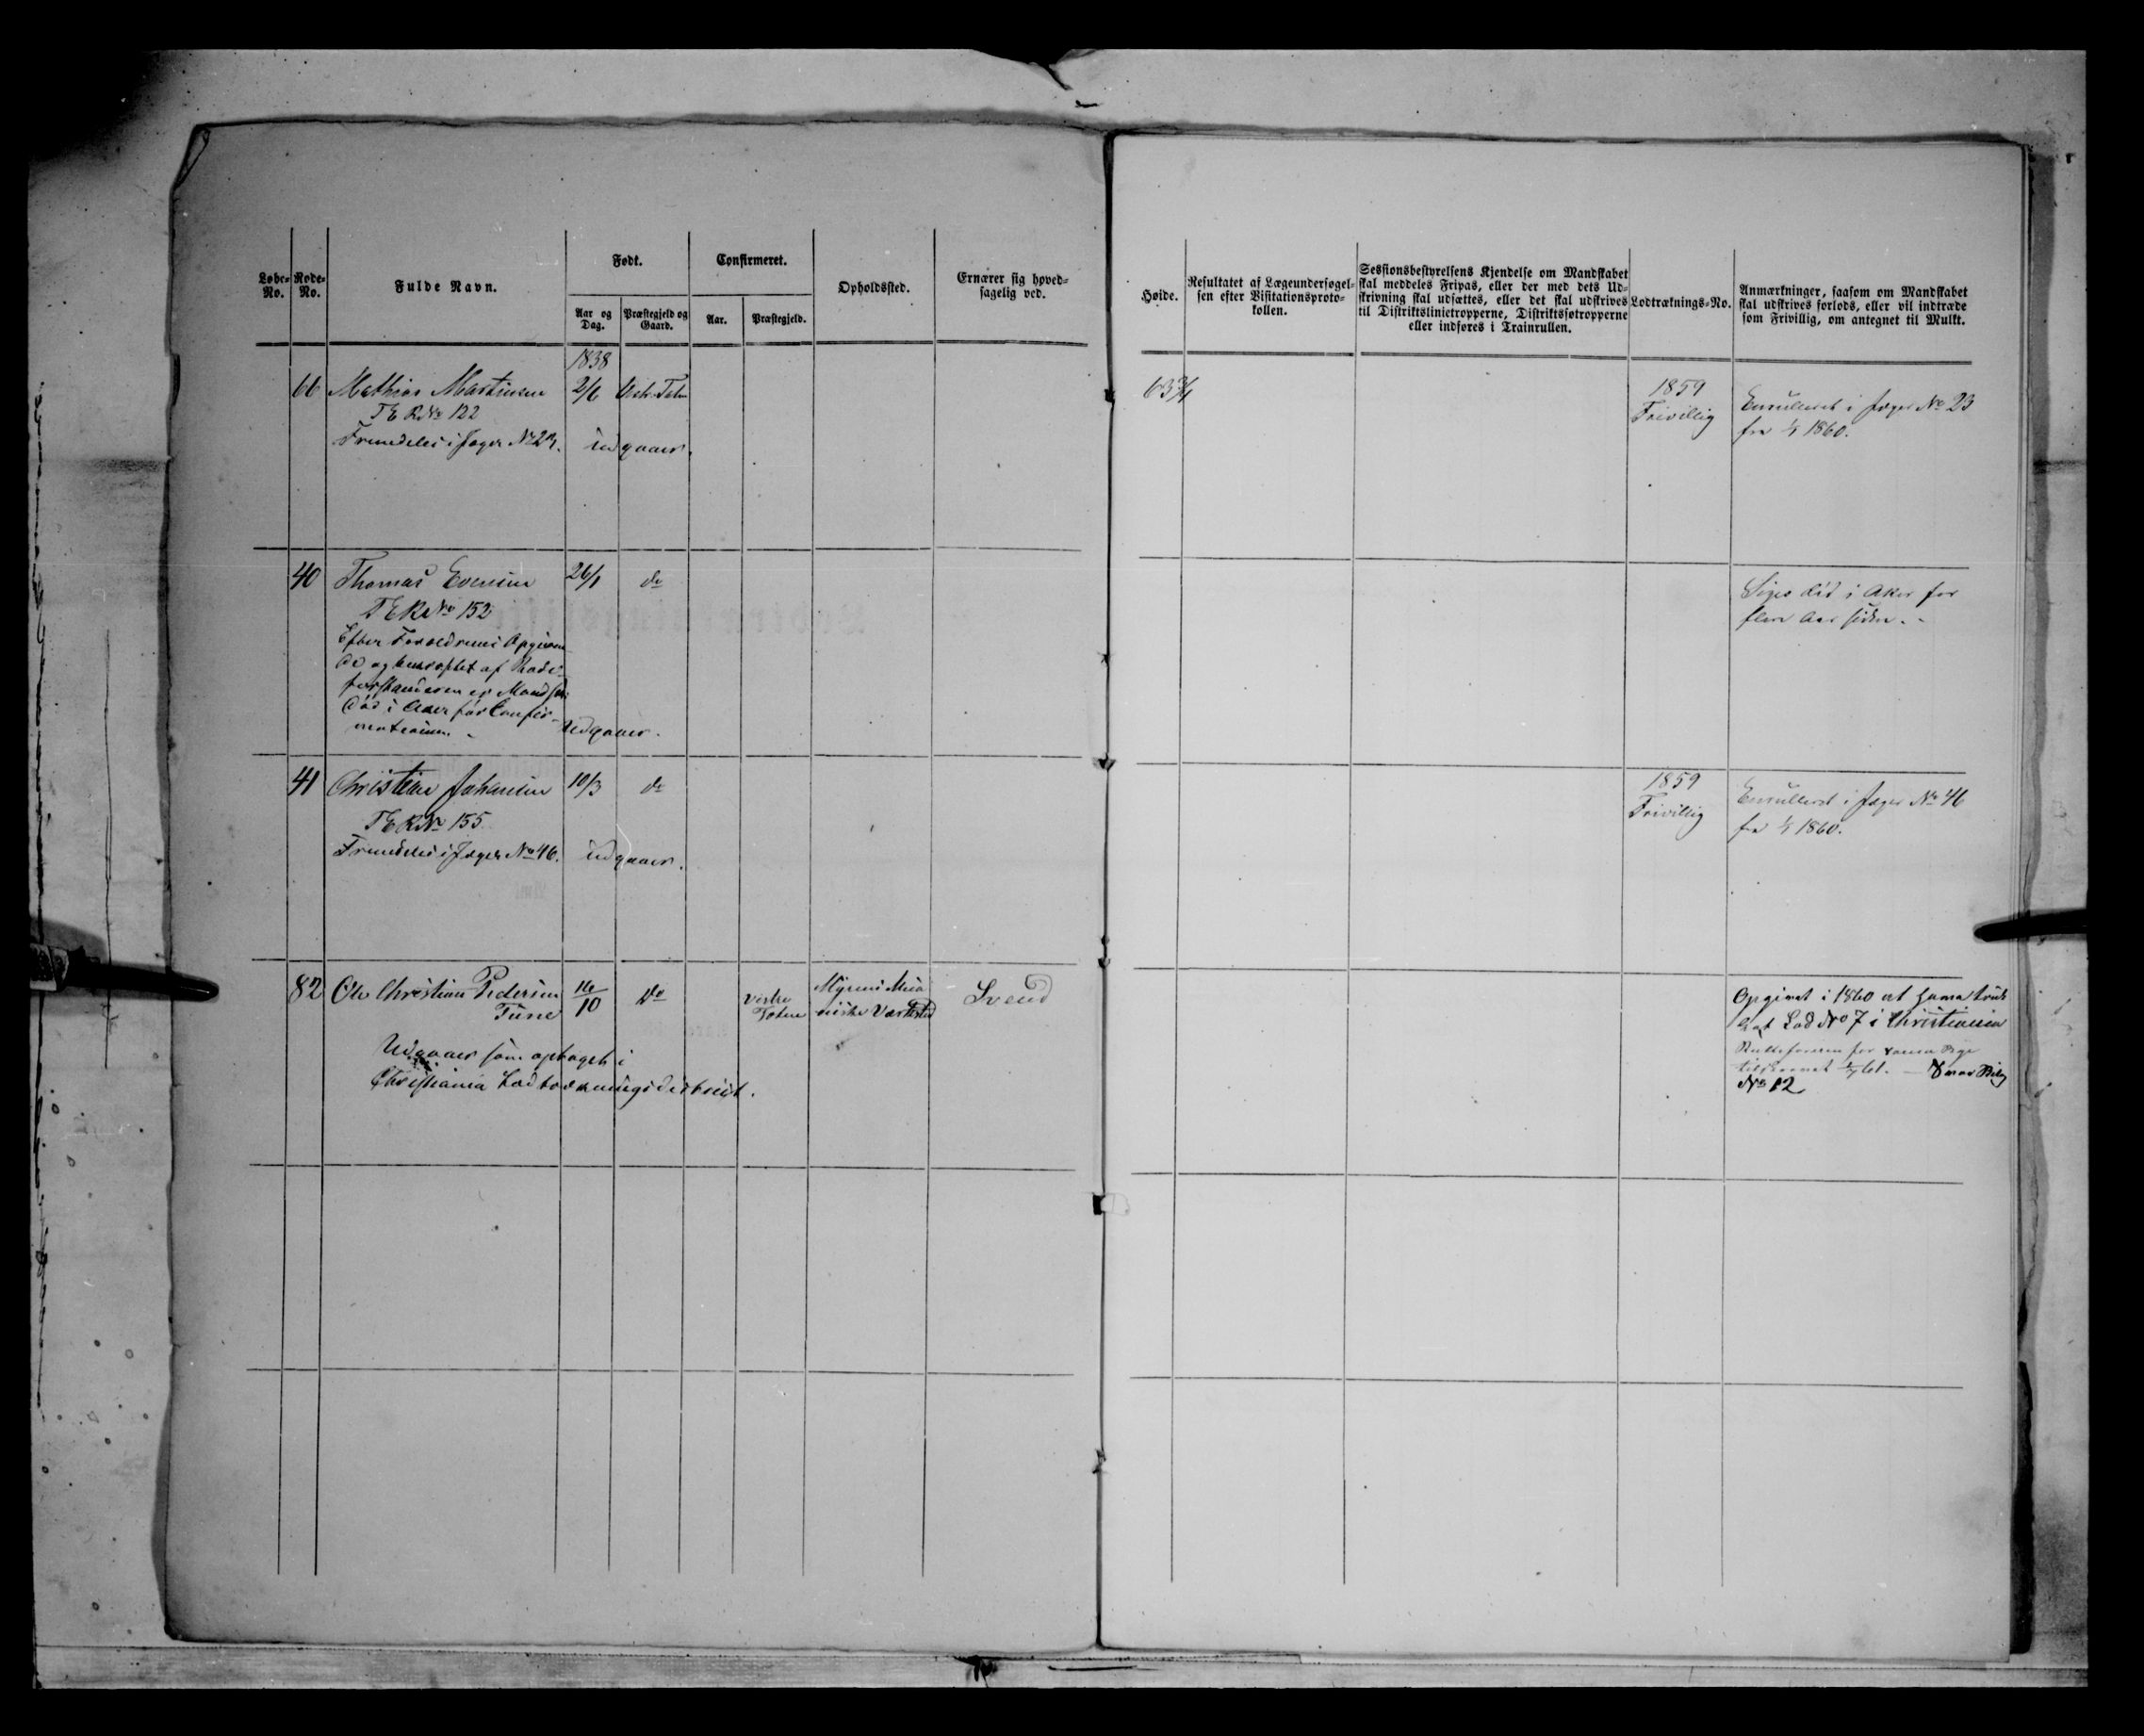 Løbe-No.
Rode-No.
Fulde Navn.
Født.
Aar og Dag.
Præstegjeld og Gaard.
Confirmeret.
Aar.
Præstegjeld.
Opholdssted.
Ernærer sig hoved-
sagelig ved.
Høide.
Resultatet af Lægeundersøgel-
sen efter Visitationsproto-
kollen.
Sessionsbestyrelsens Kjendelse om Mandskabet
skal meddeles Fripas, eller der med dets Ud-
skrivning skal udsættes, eller det skal udskrives
til Distriktslinietropperne, Distriktssøtropperne
eller indføres i Trainrullen.
Lodtræknings-No.
Anmærkninger, saasom om Mandskabet
skal udskrives forlods, eller vil indtræde
som Frivillig, om antegnet til Mulkt.
1838
66 Mathias Martinsen 2/6
T E R No 122
Fremdeles i Jæger No 23. udgaaer.
63 3/4
1859
Frivillig
Enrulleret i Jæger No 23
fra 1/1 1860.
40 Thomas Evensen 26/1 do
T E R No 152
Efter Forældrenes Opgivende
og af Rode-
forstanderen er Mandsk.
død i Aker før Confir-
mationen. Udgaaer.
Siges død i Aker for
flere Aar siden.
41 Christian Johansen 10/3 do
T E R No 155
Fremdeles i Jæger No 46. udgaaer.
1859
Frivillig
Enrulleret i Jæger No 46
fra 1/1 1860.
82 Ole Christian Pedersen 16/10 do
Tune
Vestre
Toten
Myrens
Værksted
Svend
Udgaaer som optaget i
Christiania Lodtrækningsdistrict.
Opgivet i 1860 at have trukket
Lod No 7 i Christiania
Rulleføreren for
No 12